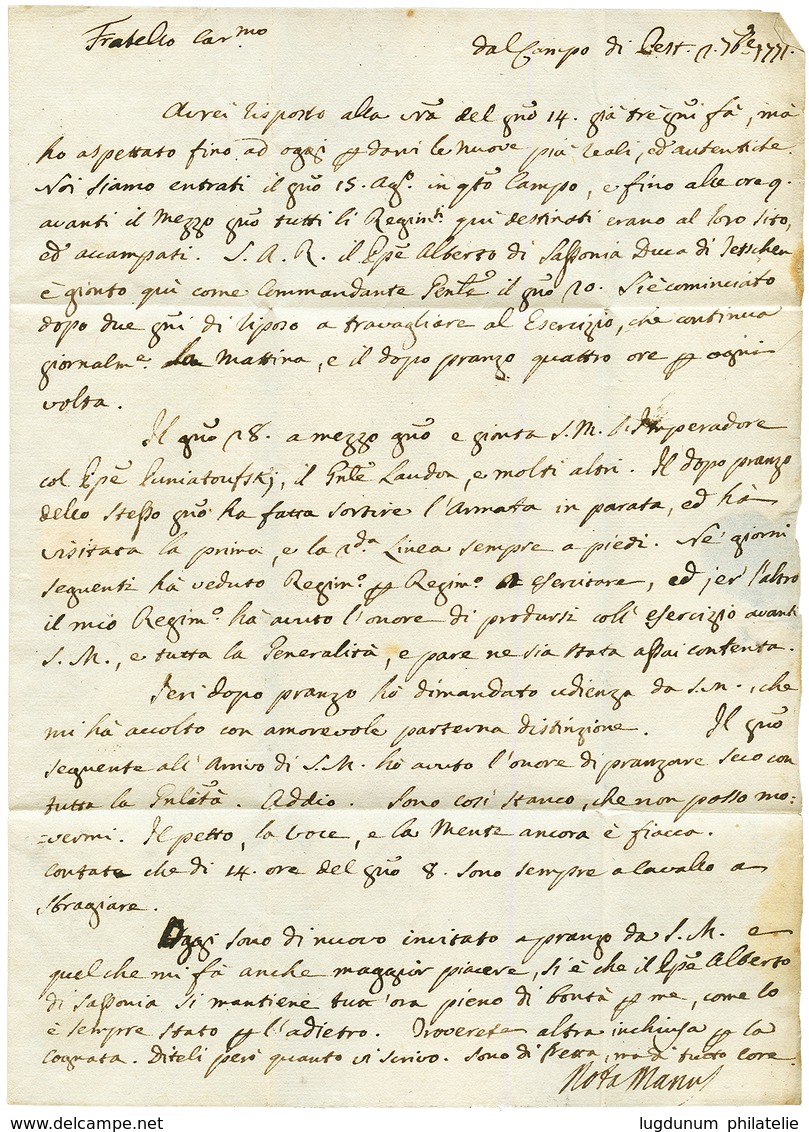 Fratello Car.mo
dal Campo di Pest. 2. 7bre 1771.
Avrei risposto alla vra del gño 14. già tre gñi fà, mà
hò aspettato fino ad oggi p darvi le nuove più reali, ed autentiche.
Noi siamo entrati il gño 15. Agto. in qto Campo, e fino alle ore 9.
avanti il mezzo gño tutti li Regimti. qui destinati erano al loro sito,
ed accampati. S. A. R. il Ppe Alberto di Sassonia Duca di Tesschen
è gionto quì come Commandante Genle il gño 20. Si è cominciato
dopo due gñi di riposo a travagliare al Esercizio, che continua
giornalme. la mattina, e il dopo pranzo quattro ore p ogni
volta.
Il gño 28. a mezzo gño e gionta S. M. l'Imperadore
col Ppe Puniatoufskj, il Gnle Laudon, e molti altri. Il dopo pranzo
dello stesso gño ha fatta sortire l'Armata in parata, ed hà
visitata la prima, e la 2da Linea sempre a piedi. Ne' giorni
seguenti hà veduto Regimo. p Regimo. a esercitare, ed jer l'altro
il mio Regimo. hà avuto l'onore di prodursi coll' esercizio avanti
S. M., e tutta la Generalità, e pare ne sia stata assai contenta.
Jeri dopo pranzo hò dimandato udienza da S. M., che
mi hà accolto con amorevole paterna distinzione. Il gño
seguente all' Arrivo di S. M. hò avuto l'onore di pranzare seco con
tutta la Gnlità. Addio. Sono così stanco, che non posso mo:
=vermi. Il petto, la voce, e la mente ancora è fiacca.
contate che di 14. ore del gño 8. sono sempre a Cavallo a
stragiare.
Oggi sono di nuovo invitato a pranzo da S. M. e
quel che mi fà anche maggior piacere, si è che il Ppe Alberto
di Sassonia si mantiene tutt'ora pieno di bontà p me, come lo
è sempre stato p l'adietro. Troverete altra inchiusa p la
Cognata. Diteli però quanto vi scrivo. Sono di fretta, ma di tutto core
Nota Manus
www.delcampe.net
lugdunum philatelie